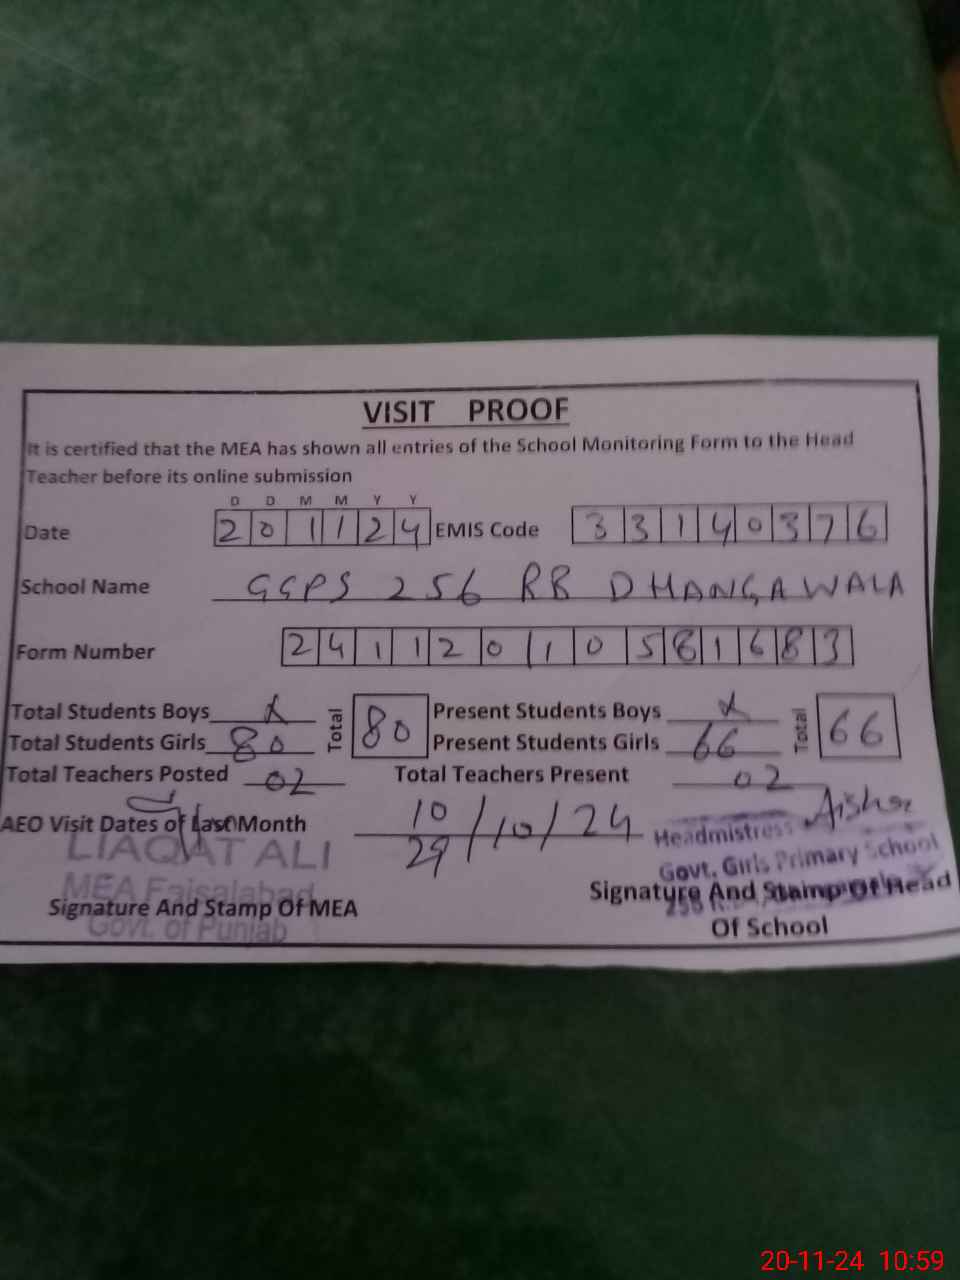 VISIT PROOF
It is certified that the MEA has shown all entries of the School Monitoring Form to the Head
Teacher before its online submission
D D M M Y Y
Date 20 11 24 EMIS Code 33140376
School Name GGPS 256 RB DHANGAWALA
Form Number 241120110581683
Total Students Boys x Total 80 Present Students Boys x Total 66
Total Students Girls 80 Present Students Girls 66
Total Teachers Posted 02 Total Teachers Present 02
AEO Visit Dates of Last Month 10/29/10/24
LIAQAT ALI
MEA Faisalabad
Govt. of Punjab
Signature And Stamp Of MEA
Aisha
Headmistress
Govt. Girls Primary School
Signature And Stamp Of Head
Of School
20-11-24 10:59